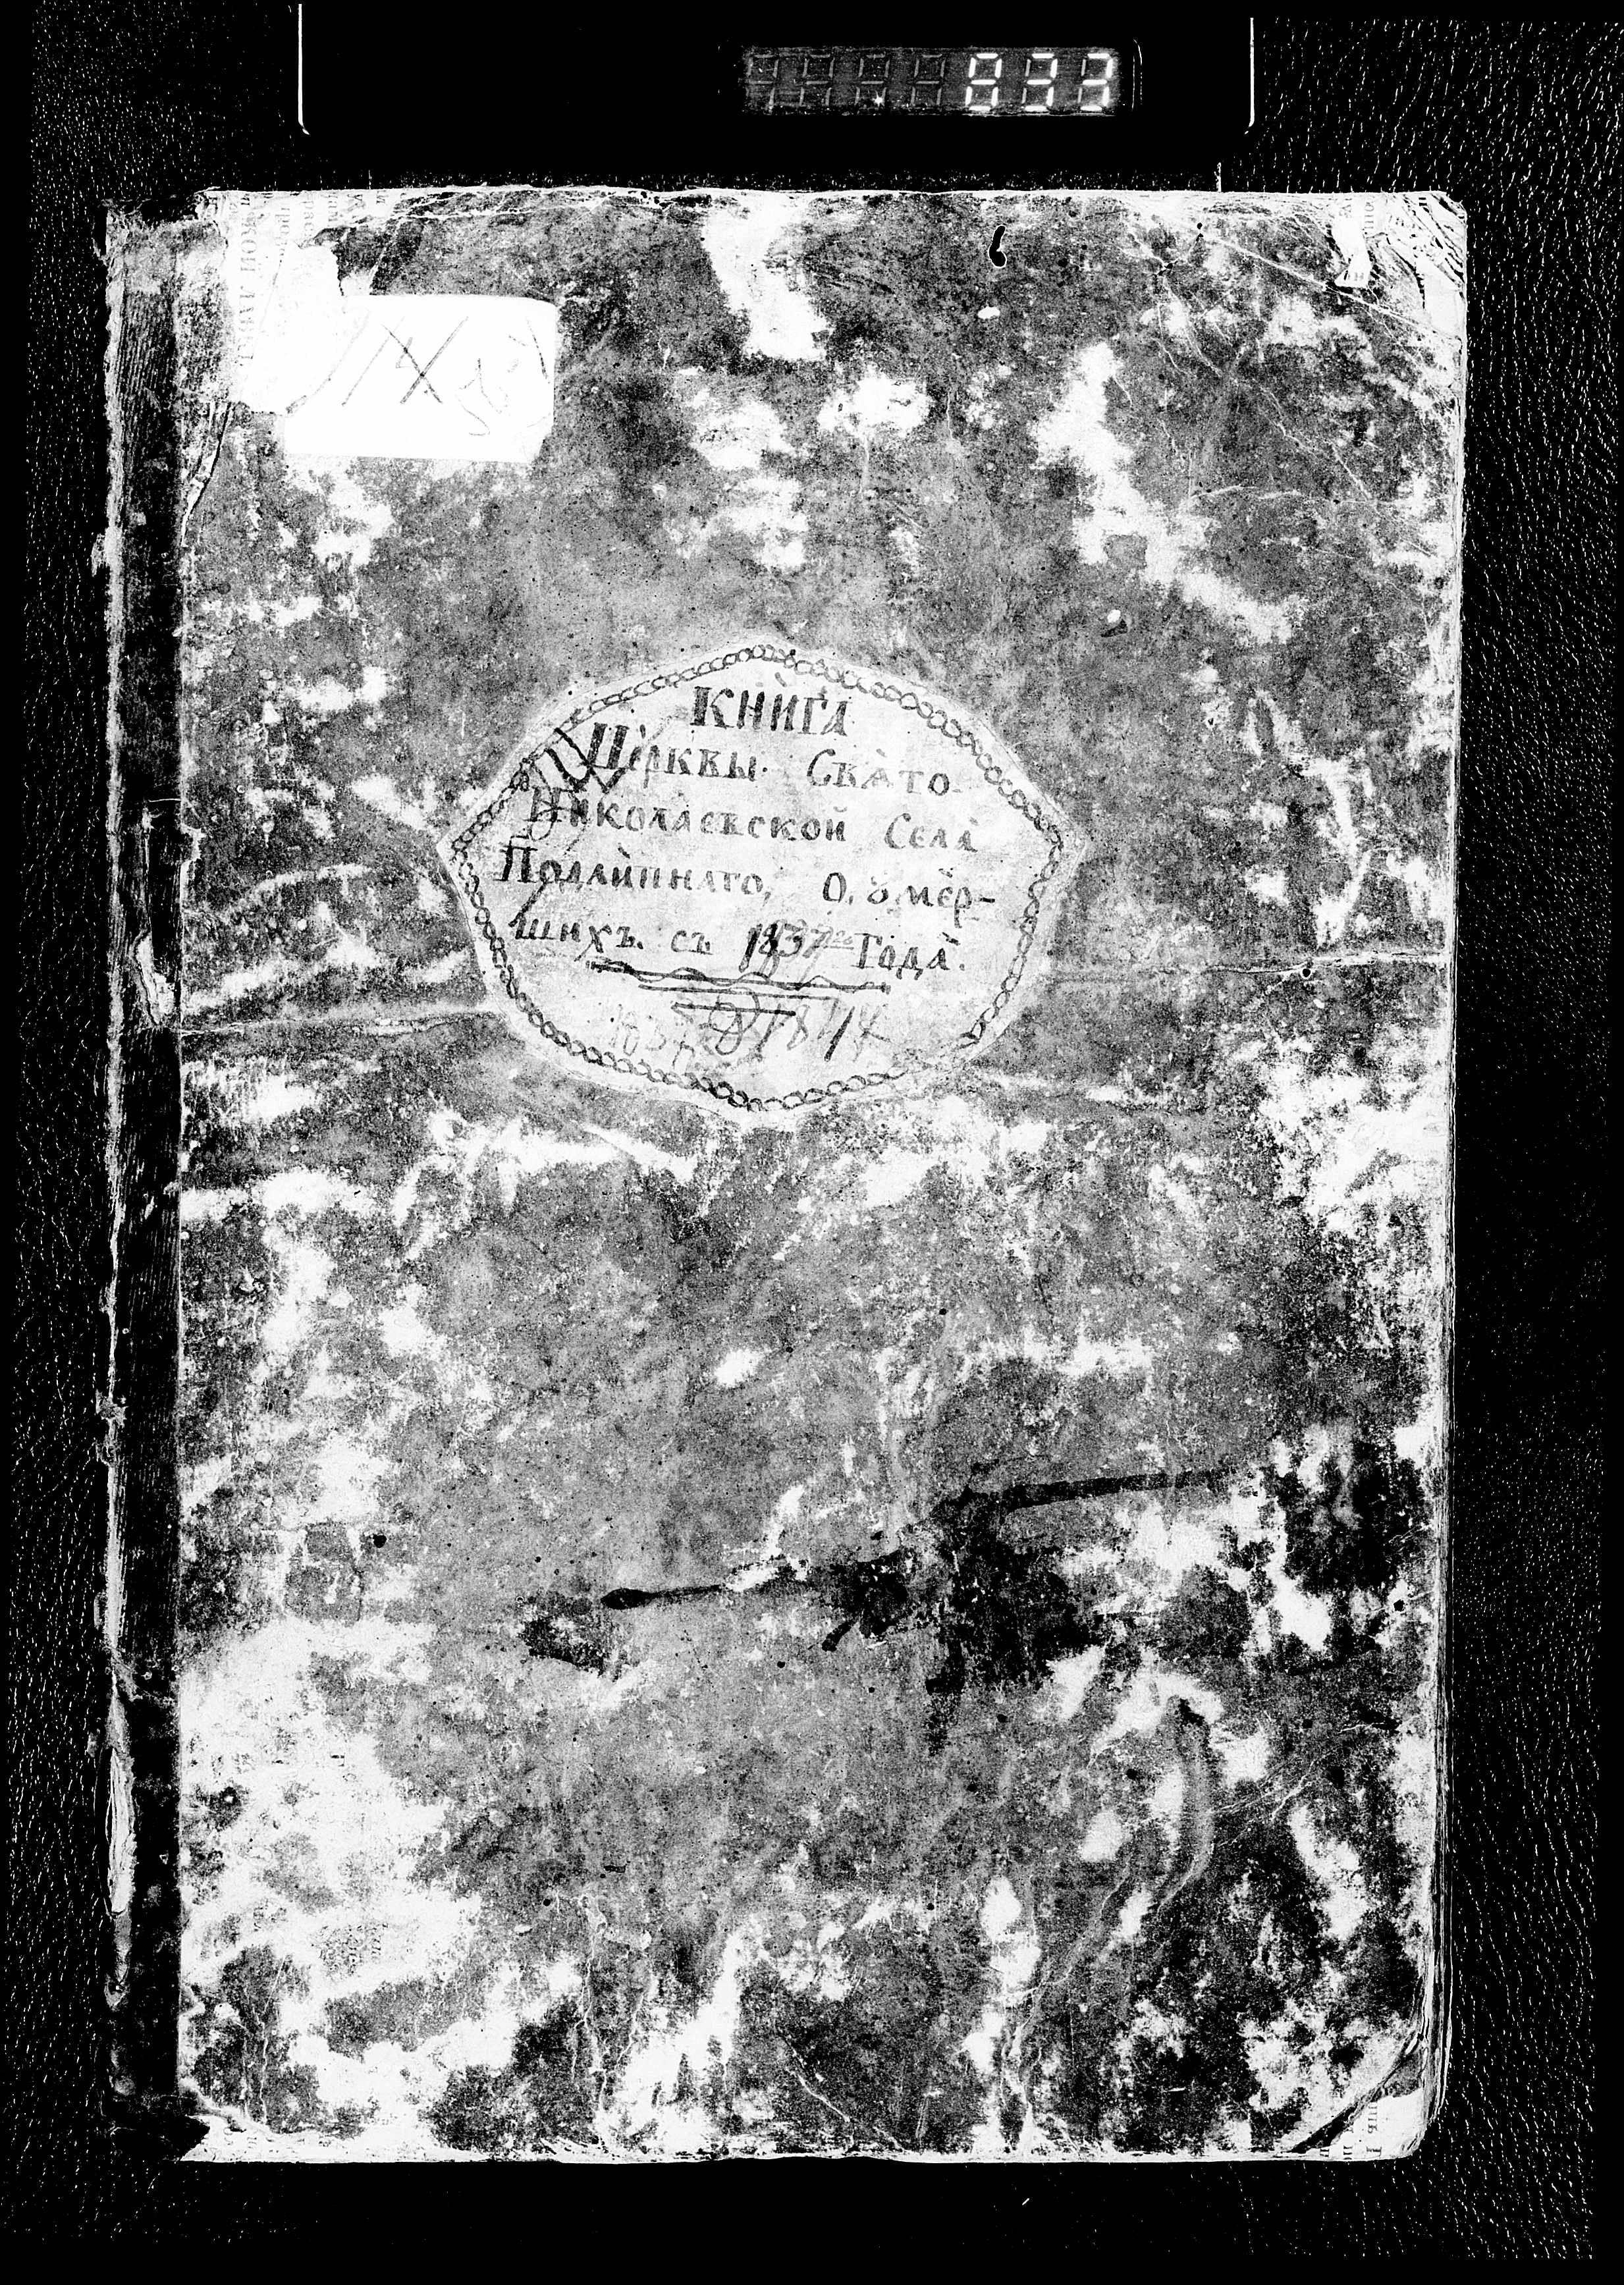 033
КНИГА
Церквы. Свято-
Николаевской Села
Подлипнаго, О. ȣмер-
шихъ. съ 1837го Года.